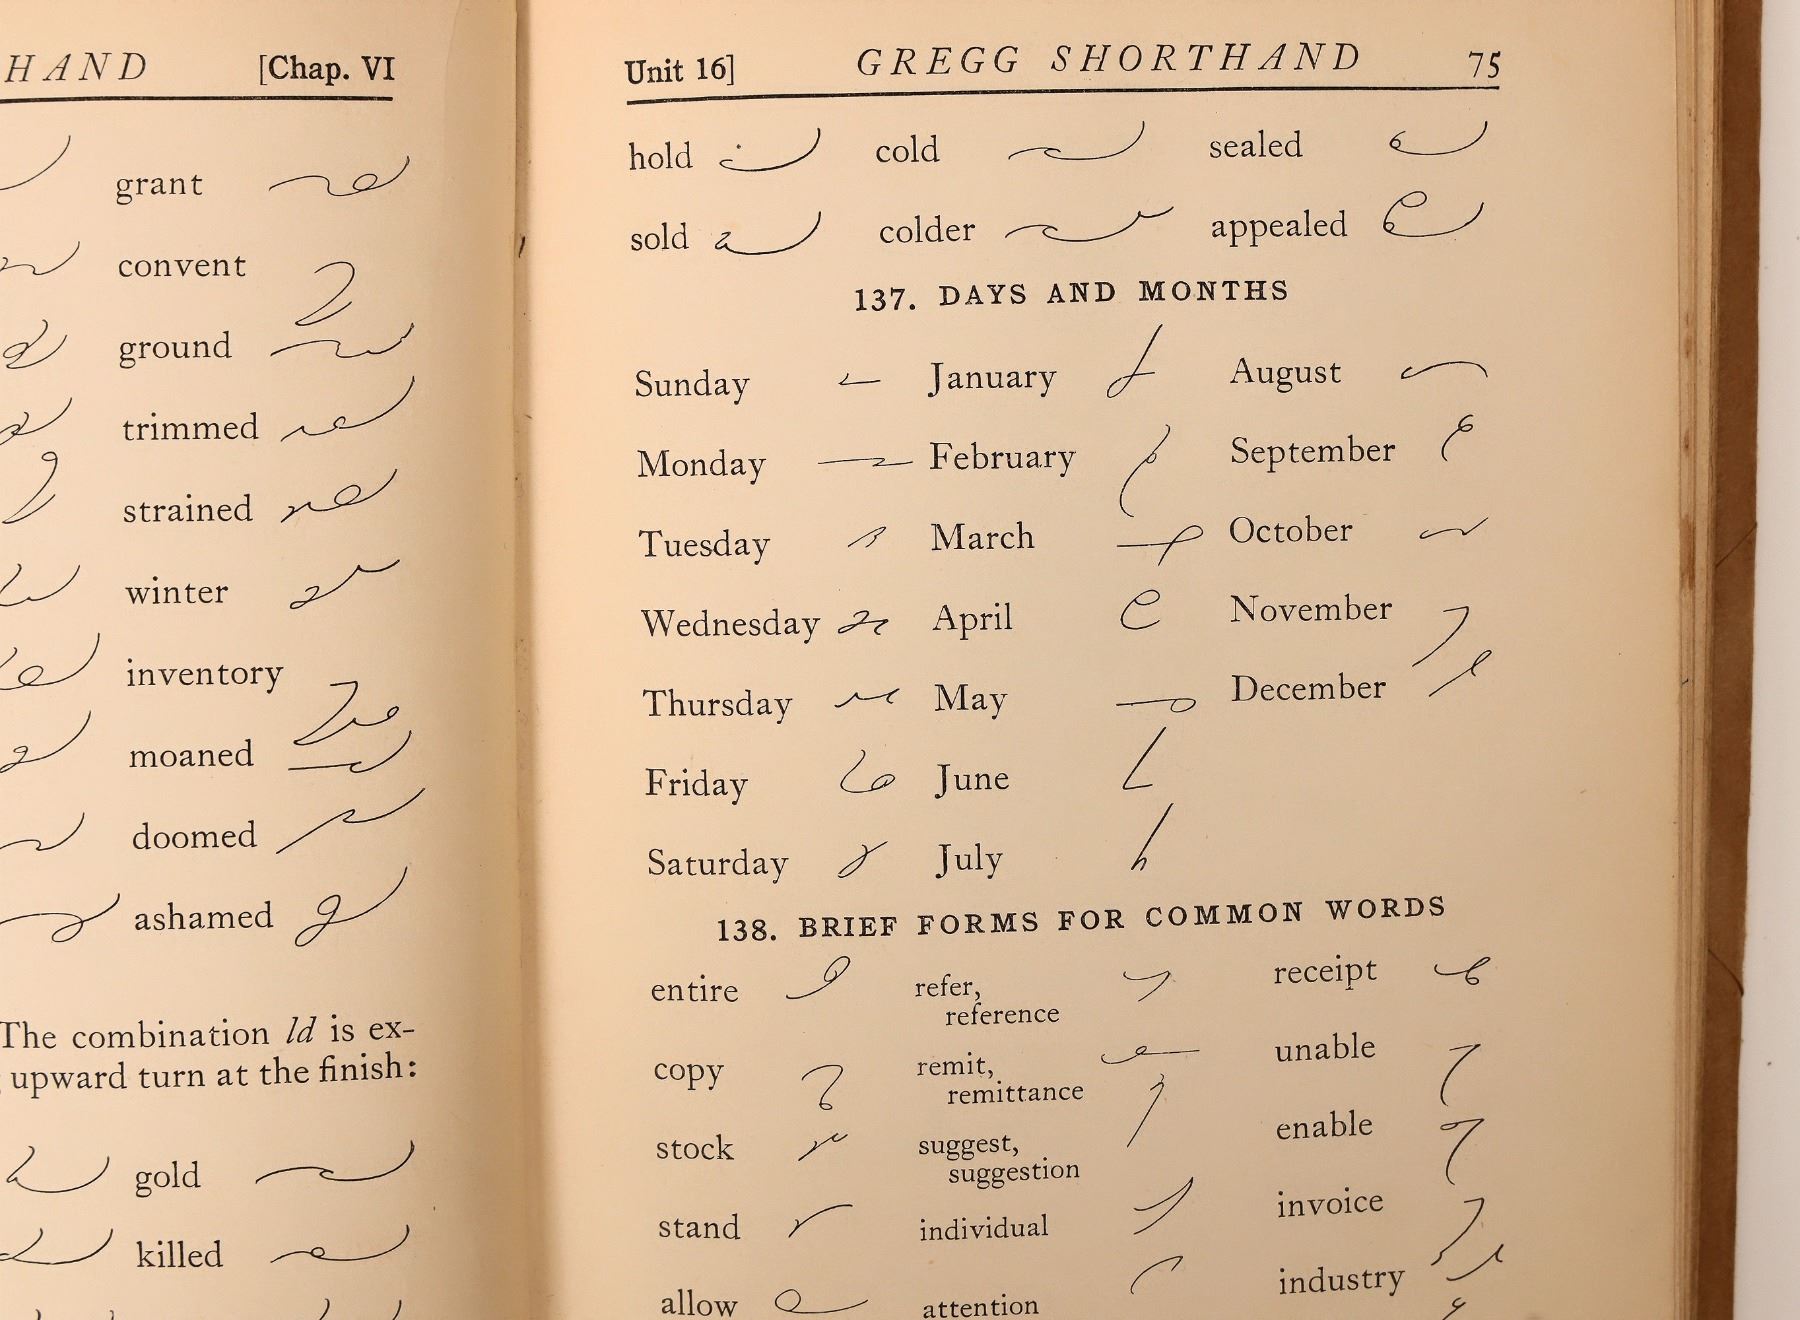 HAND [Chap. VI
grant
convent
ground
trimmed
strained
winter
inventory
moaned
doomed
ashamed
The combination ld is ex-
upward turn at the finish:
gold
killed
Unit 16] GREGG SHORTHAND 75
hold cold sealed
sold colder appealed
137. DAYS AND MONTHS
Sunday January August
Monday February September
Tuesday March October
Wednesday April November
Thursday May December
Friday June
Saturday July
138. BRIEF FORMS FOR COMMON WORDS
entire refer, receipt
reference
copy remit, unable
remittance
stock suggest, enable
suggestion
stand individual invoice
allow attention industry